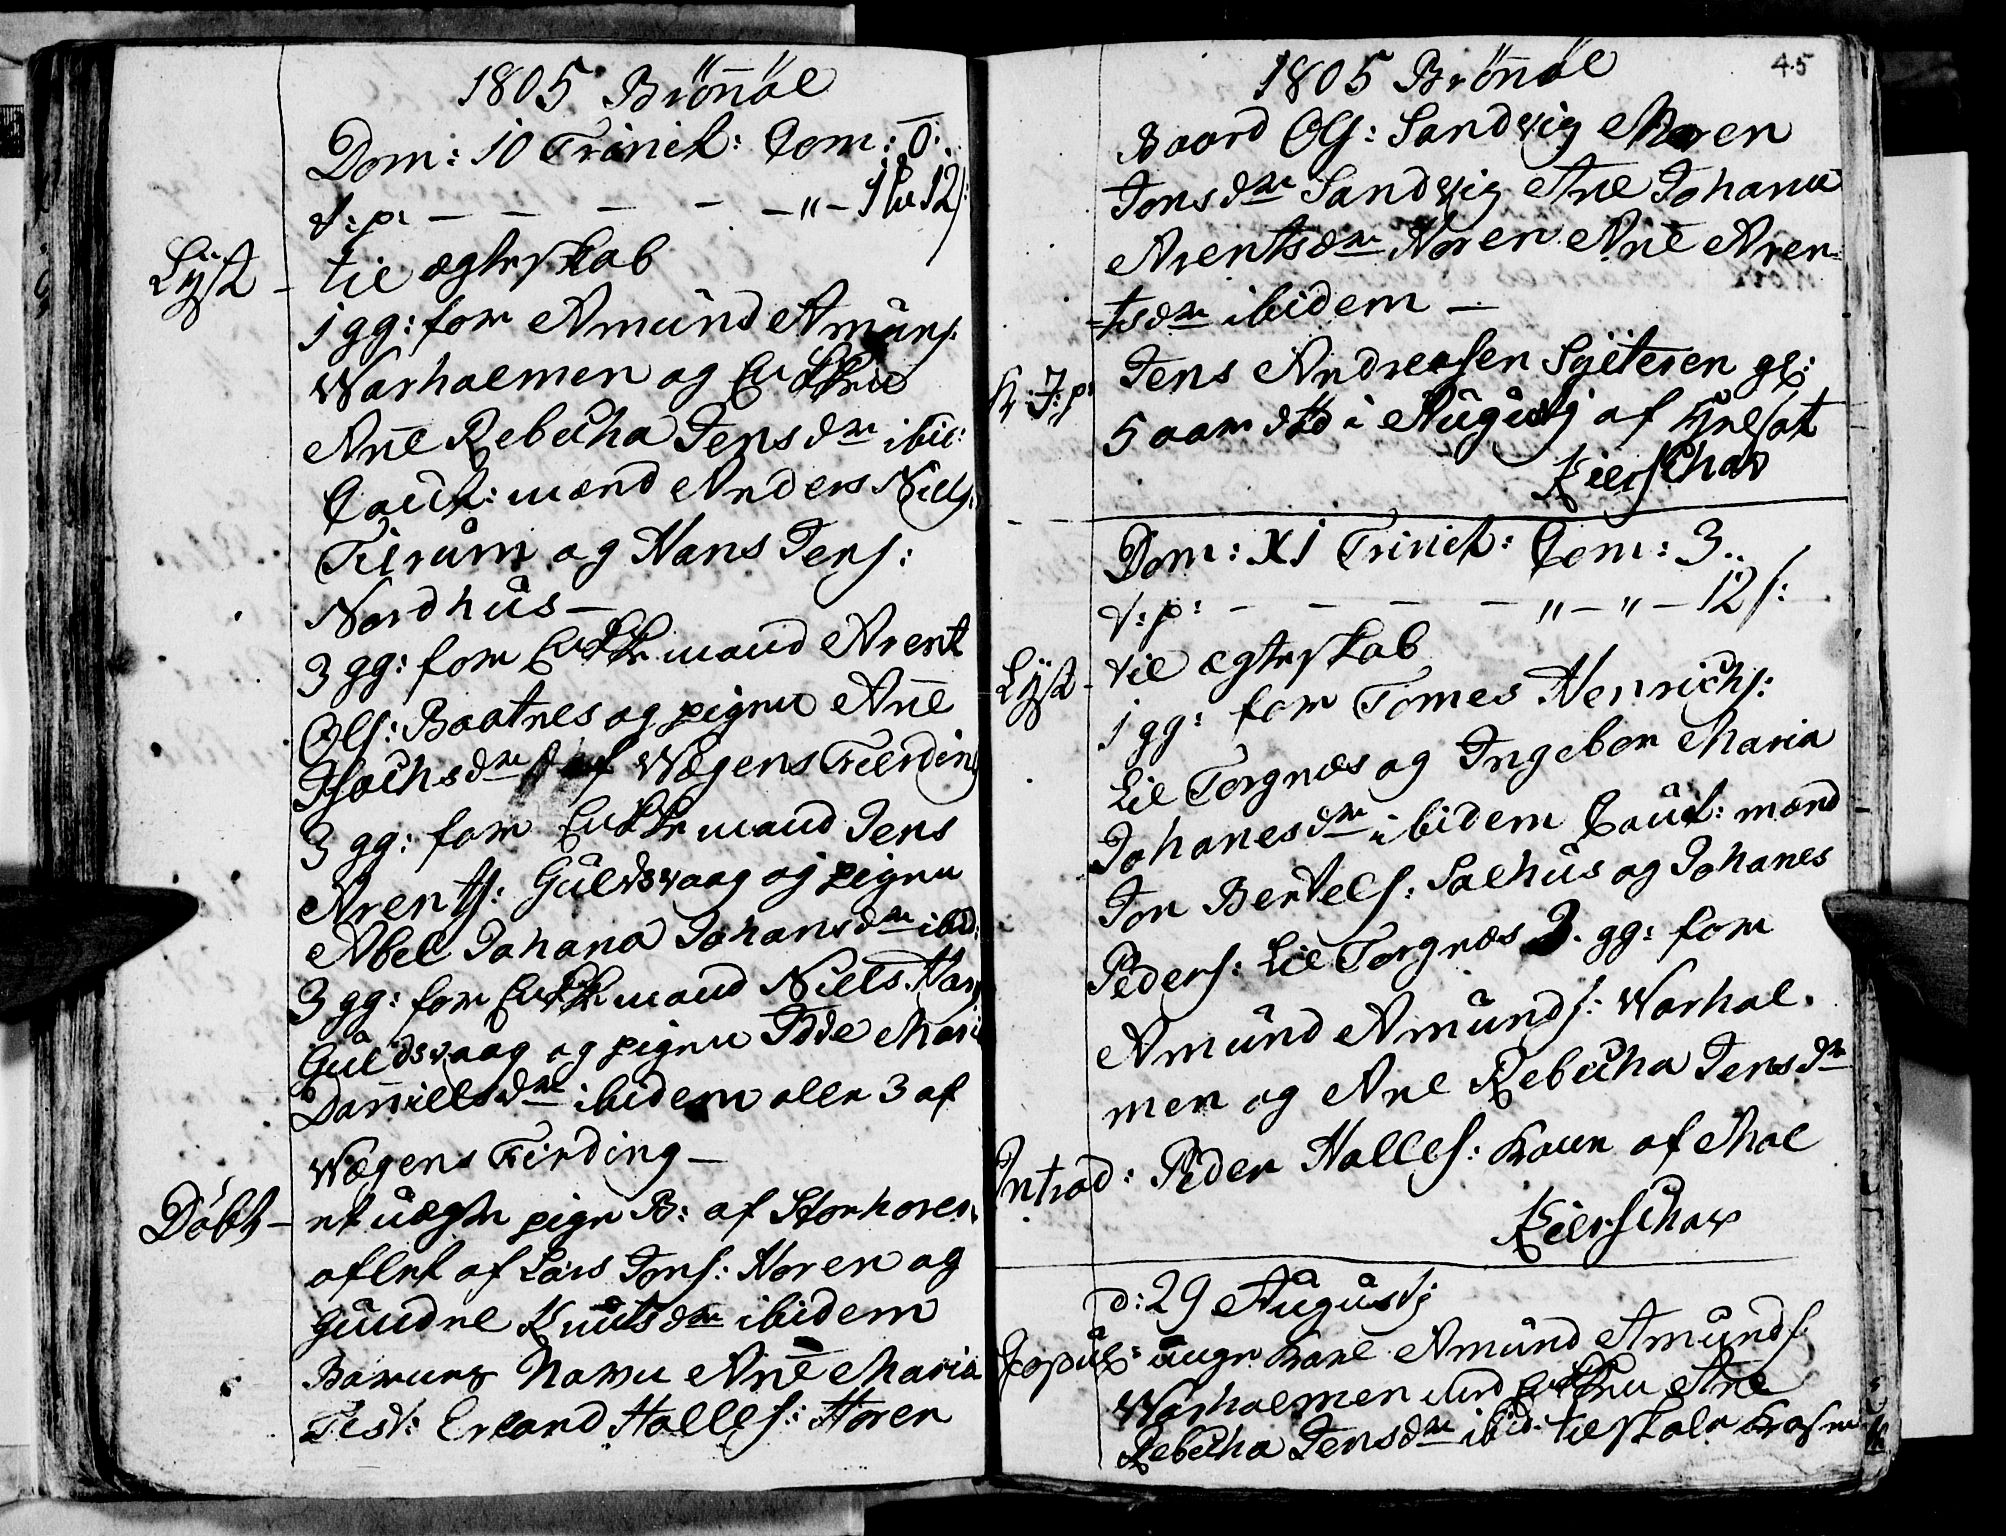 1805 Brönöe
Dom: 10 Trinit: Com: 0:
t: p: — — — — — " — 1 12 s:
Lÿst — til ægteskab
1 gg: for Amund Amunds:
Warholmen og Enkken
Ane Rebecha Jensdr ibid:
Caut: mænd Anders Niels:
Tilrum og Hans Jens:
Nordhus —
3 gg: for Enkkemand Arent
Ols: Baatnes og pigen Ane
Isachsdr af Wegens Fierding
3 gg: for Enkkemand Jens
Arents: Guldsvaag og pigen
Abel Johana Johansdr ibid:
3 gg: for Enkkemand Niels Hans:
Guldsvaag og pigen Idde Maria
Daniellsdr ibidem alle 3 af
Wegens Fierding —
Döbt — et uægte pige B: af Storhoren
aflet af Lars Jons: Horen og
Knutsdr ibidem
Barnets Navn Ane Maria
Test: Erland Halles: Horen
45
1805 Brönöe
Baard Ols: Sandvig Maren
Jonsdr Sandvig Ane Johana
Arentsdr Horen Ane Aren-
-tsdr ibidem —
J: p: Jens Andreasen Sÿeteren gl:
5 aar död i Augusti af
Kierschow
Dom: XI Trinit: Com: 3..
t: p: — — — — " — " — 12 s:
Lÿst — til ægteskab
1 gg: for Tomes Henrichs:
Lil Torgnes og Ingebor Maria
Johanesdr ibidem Caut: mænd
Jon Bertels: Salhus og Johanes
Peders: Lil Torgnes 2. gg: for
Amund Amunds: Warhol.
men og Ane Rebecha Jensdr
Introd: Peder Halles: kone af Moe
Kierschow
d: 29 Augusti
Copul: unge karl Amund Amunds
Warholmen med Enkken Ane
Rebecha Jensdr ibid: